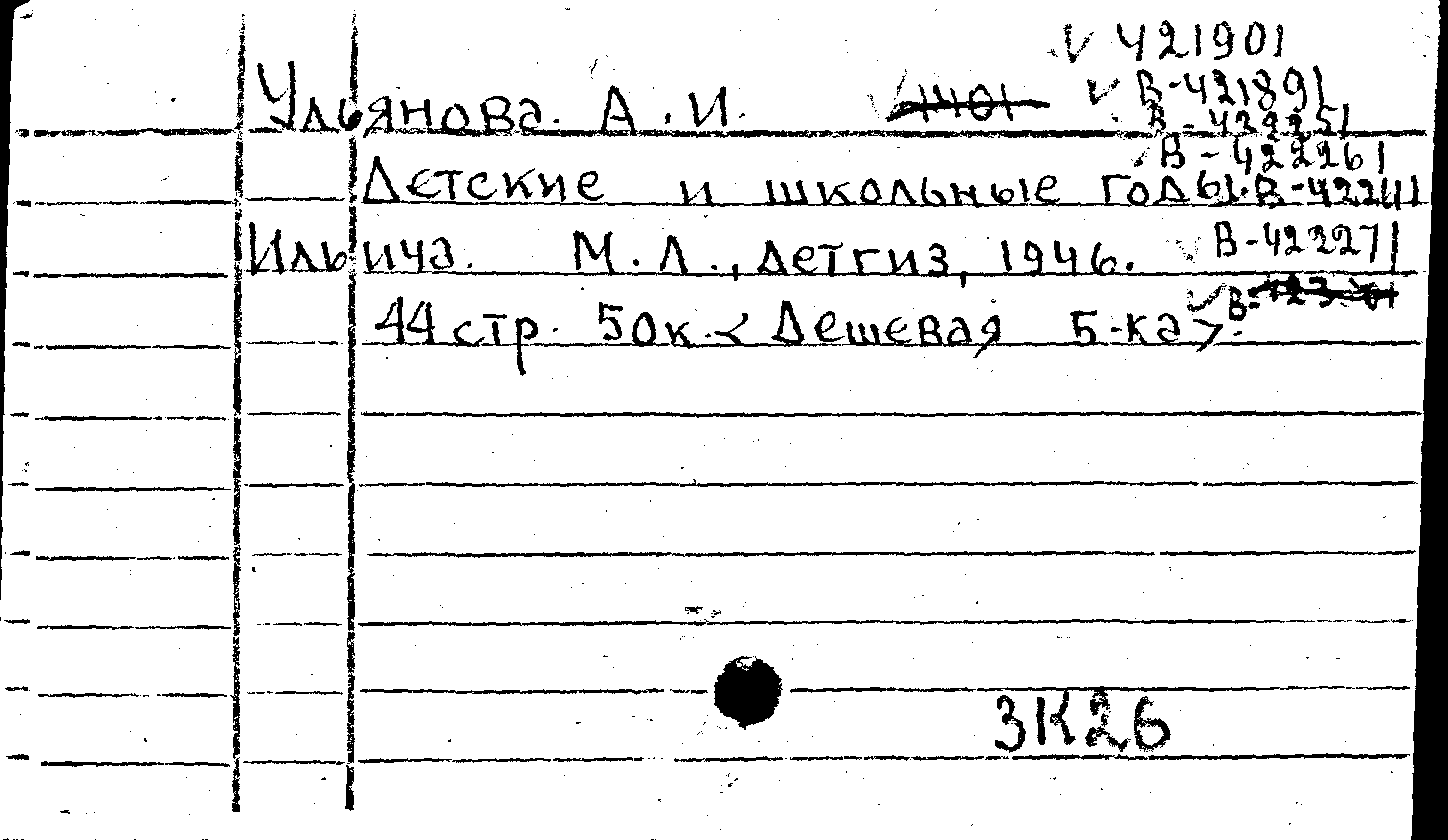 421901
Ульянова. А. И. В-421891
В-422251
В-422261
Детские и школьные годы. В-422
Ильича. М. Л., Детгиз, 1946. В-422271
44 стр. 50к. < Дешевая Б-ка >.
ЗК26